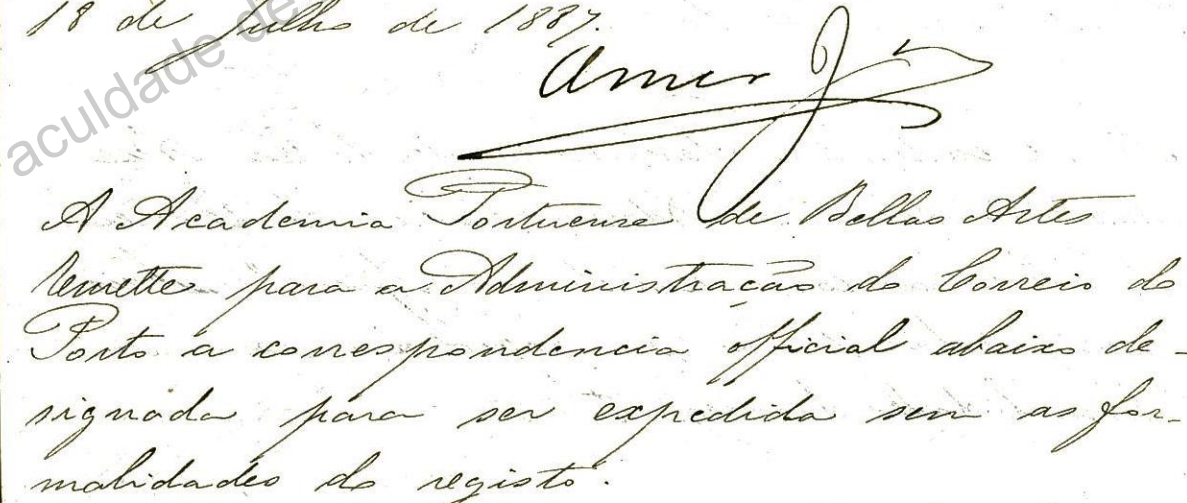 18 de Julho de 1887.
A Academia Portuense de Bellas Artes
remette para a Administração do Correio do
Porto a correspondencia official abaixo de-
signada para ser expedida sem as for-
malidades do registo.
aculdade de